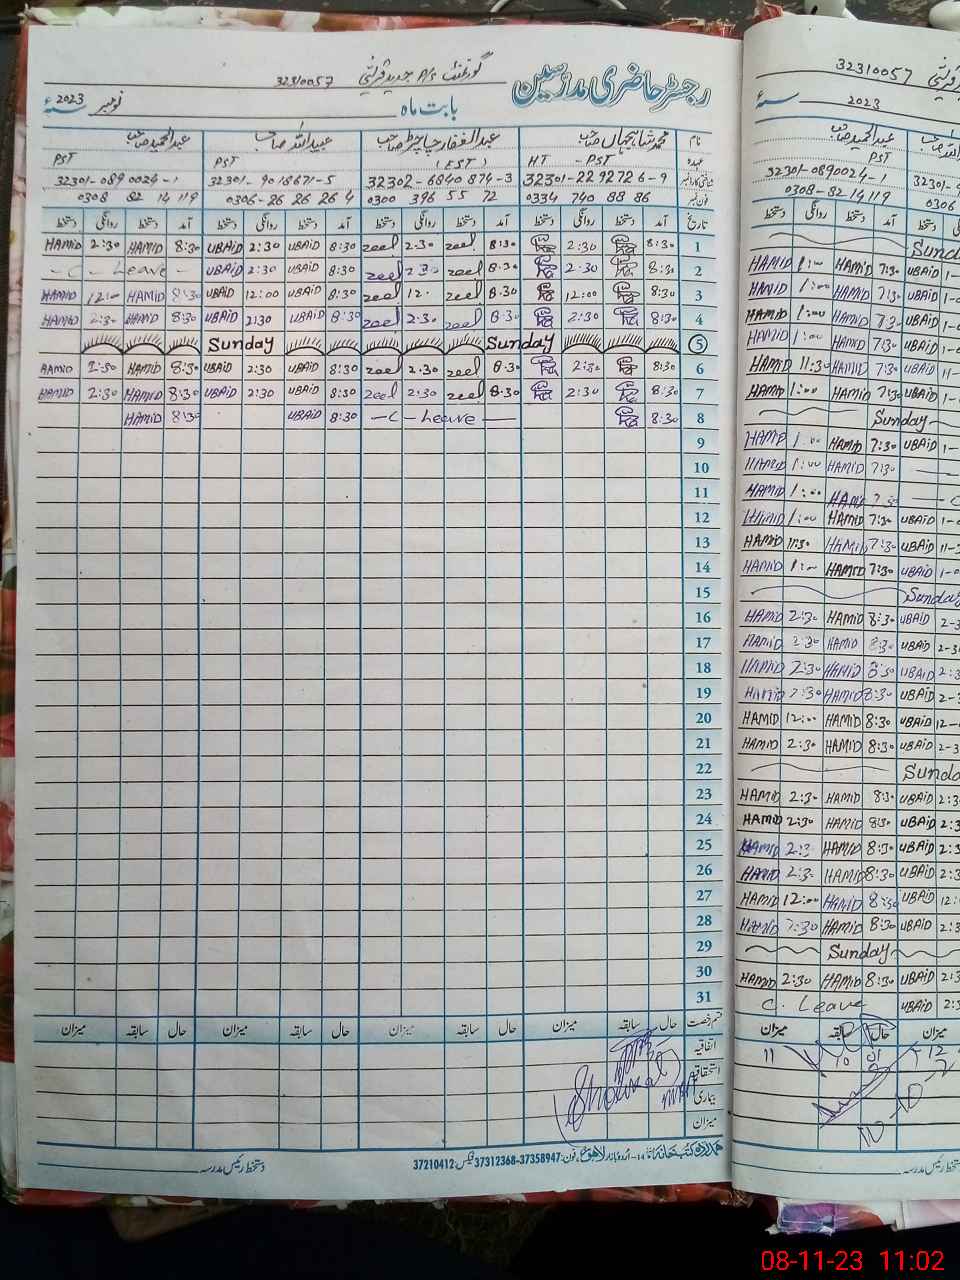 گورنمنٹ P/S جدید قریشی 32310057
رجسٹر حاضری مدرسین
بابت ماہ نومبر 2023 سنہ
نام محمد شاہجہاں صاحب عبدالغفار چاچڑ صاحب عبیداللہ صاحب عبدالحمید صاحب
عہدہ HT - PST (EST) PST PST
شناختی کارڈ نمبر 32301-2292726-9 32302-6840874-3 32301-9018671-5 32301-0890024-1
فون نمبر 0334 740 88 86 0300 396 55 72 0306-26 26 26 4 0308 82 14 119
تاریخ آمد دستخط روانگی دستخط آمد دستخط روانگی دستخط آمد دستخط روانگی دستخط آمد دستخط روانگی دستخط
HAMID 2:30 HAMID 8:30 UBAID 2:30 UBAID 8:30 zeel 2:30 zeel 8:30 2:30 8:30 1
- C - Leave - UBAID 2:30 UBAID 8:30 zeel 2:30 zeel 8:30 2:30 8:30 2
HAMID 12:00 HAMID 8:30 UBAID 12:00 UBAID 8:30 zeel 12. zeel 8:30 12:00 8:30 3
HAMID 2:30 HAMID 8:30 UBAID 2:30 UBAID 8:30 zeel 2:30 zeel 8:30 2:30 8:30 4
Sunday Sunday 5
HAMID 2:30 HAMID 8:30 UBAID 2:30 UBAID 8:30 zeel 2:30 zeel 8:30 2:30 8:30 6
HAMID 2:30 HAMID 8:30 UBAID 2:30 UBAID 8:30 zeel 2:30 zeel 8:30 2:30 8:30 7
HAMID 8:30 UBAID 8:30 - C - Leave - 8:30 8
9
10
11
12
13
14
15
16
17
18
19
20
21
22
23
24
25
26
27
28
29
30
31
ختم رخصت حال سابقہ میزان حال سابقہ میزان حال سابقہ میزان حال سابقہ میزان
اتفاقیہ
استحقاقیہ
بیماری
میزان
ہمدرد کتب خانہ 14-اردو بازار لاہور، فون: 37358947-37312368 فیکس: 37210412
دستخط رئیس مدرسہ
32310057
2023 سنہ
عبدالحمید صاحب
PST
32301-0890024-1 32301-9
0308-82-14119 0306
آمد دستخط روانگی دستخط
Sunday
HAMID 1:00 HAMID 7:30 UBAID 1-
HAMID 1:00 HAMID 7:30 UBAID 1-0
HAMID 1:00 HAMID 7:30 UBAID 1-0
HAMID 1:00 HAMID 7:30 UBAID 1-
HAMID 11:30 HAMID 7:30 UBAID 11-
HAMID 1:00 HAMID 7:30 UBAID 1-
Sunday
HAMID 1:00 HAMID 7:30 UBAID 1-
HAMID 1:00 HAMID 7:30
HAMID 1:00 HAMID 7:30 - C
HAMID 1:00 HAMID 7:30 UBAID 1-0
HAMID 11:30 HAMID 7:30 UBAID 11-3
HAMID 1:00 HAMID 7:30 UBAID 1-0
Sunday
HAMID 2:30 HAMID 8:30 UBAID 2-3
HAMID 2:30 HAMID 8:30 UBAID 2-3
HAMID 2:30 HAMID 8:30 UBAID 2:3
HAMID 2:30 HAMID 8:30 UBAID 2-3
HAMID 12:00 HAMID 8:30 UBAID 12-
HAMID 2:30 HAMID 8:30 UBAID 2-3
Sunda
HAMID 2:30 HAMID 8:30 UBAID 2:3
HAMID 2:30 HAMID 8:30 UBAID 2:3
HAMID 2:30 HAMID 8:30 UBAID 2:3
HAMID 2:30 HAMID 8:30 UBAID 2:3
HAMID 12:00 HAMID 8:30 UBAID 12:
HAMID 2:30 HAMID 8:30 UBAID 2:3
Sunday
HAMID 2:30 HAMID 8:30 UBAID 2:3
C. Leave UBAID 2:3
میزان حال سابقہ میزان
11 10 01 12
دستخط رئیس مدرسہ
08-11-23 11:02